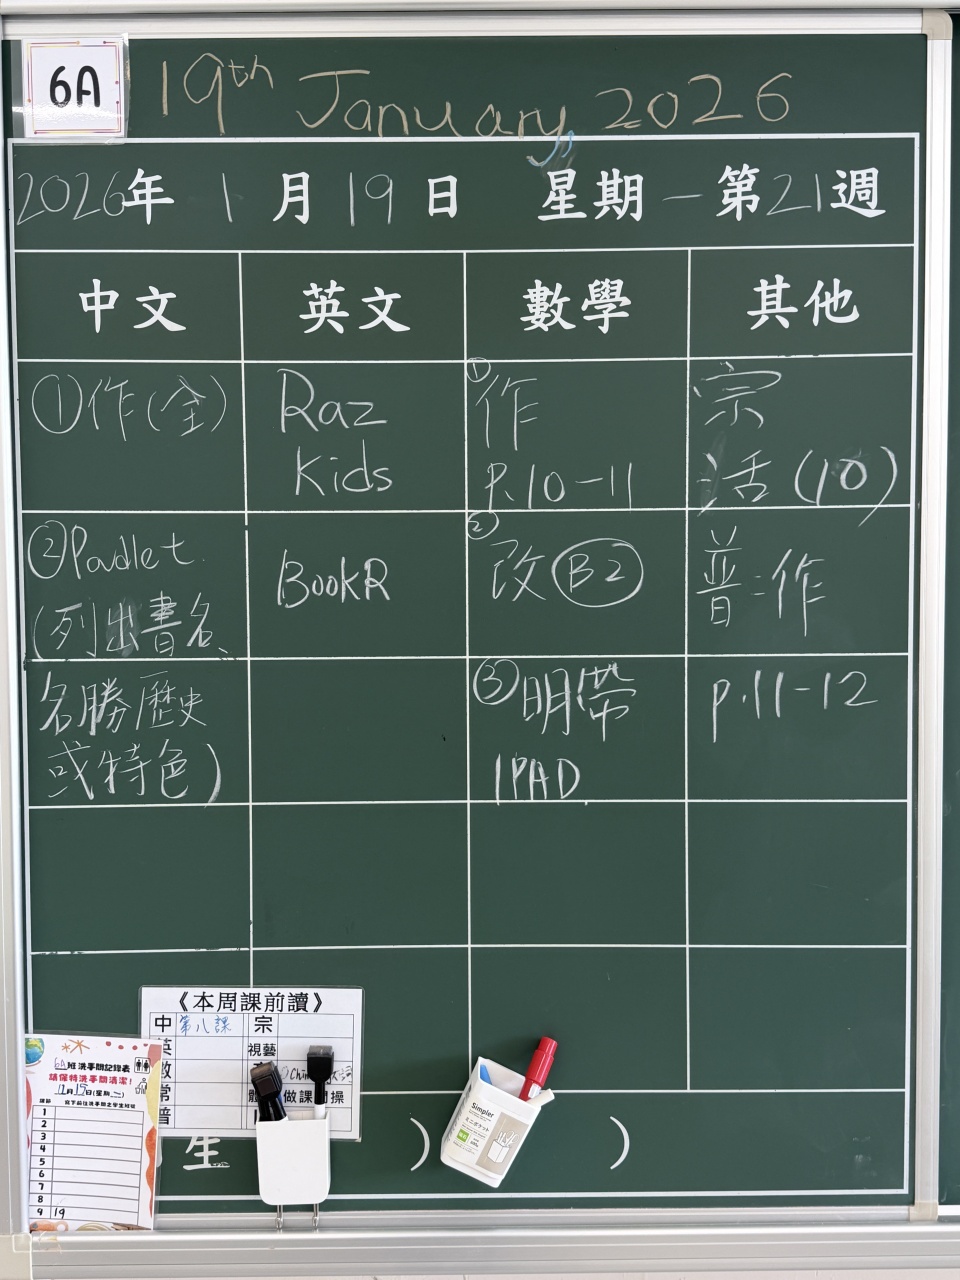 6A
19th January 2026
2026年 1月19日 星期一第21週
中文 英文 數學 其他
①作(全)
Raz Kids
①作 P.10-11
宗 活(10)
②Padlet
(列出書名、
BookR
②改 B2
普:作
名勝歷史
或特色)
③明帶
IPAD
p.11-12
《本周課前讀》
中 第八課 宗
英 視藝
數
常 做課間操
普
6A班洗手間記錄表
請保持洗手間清潔!
1
2
3
4
5
6
7
8
9 19
生 ) )
Simpler
ミニポケット